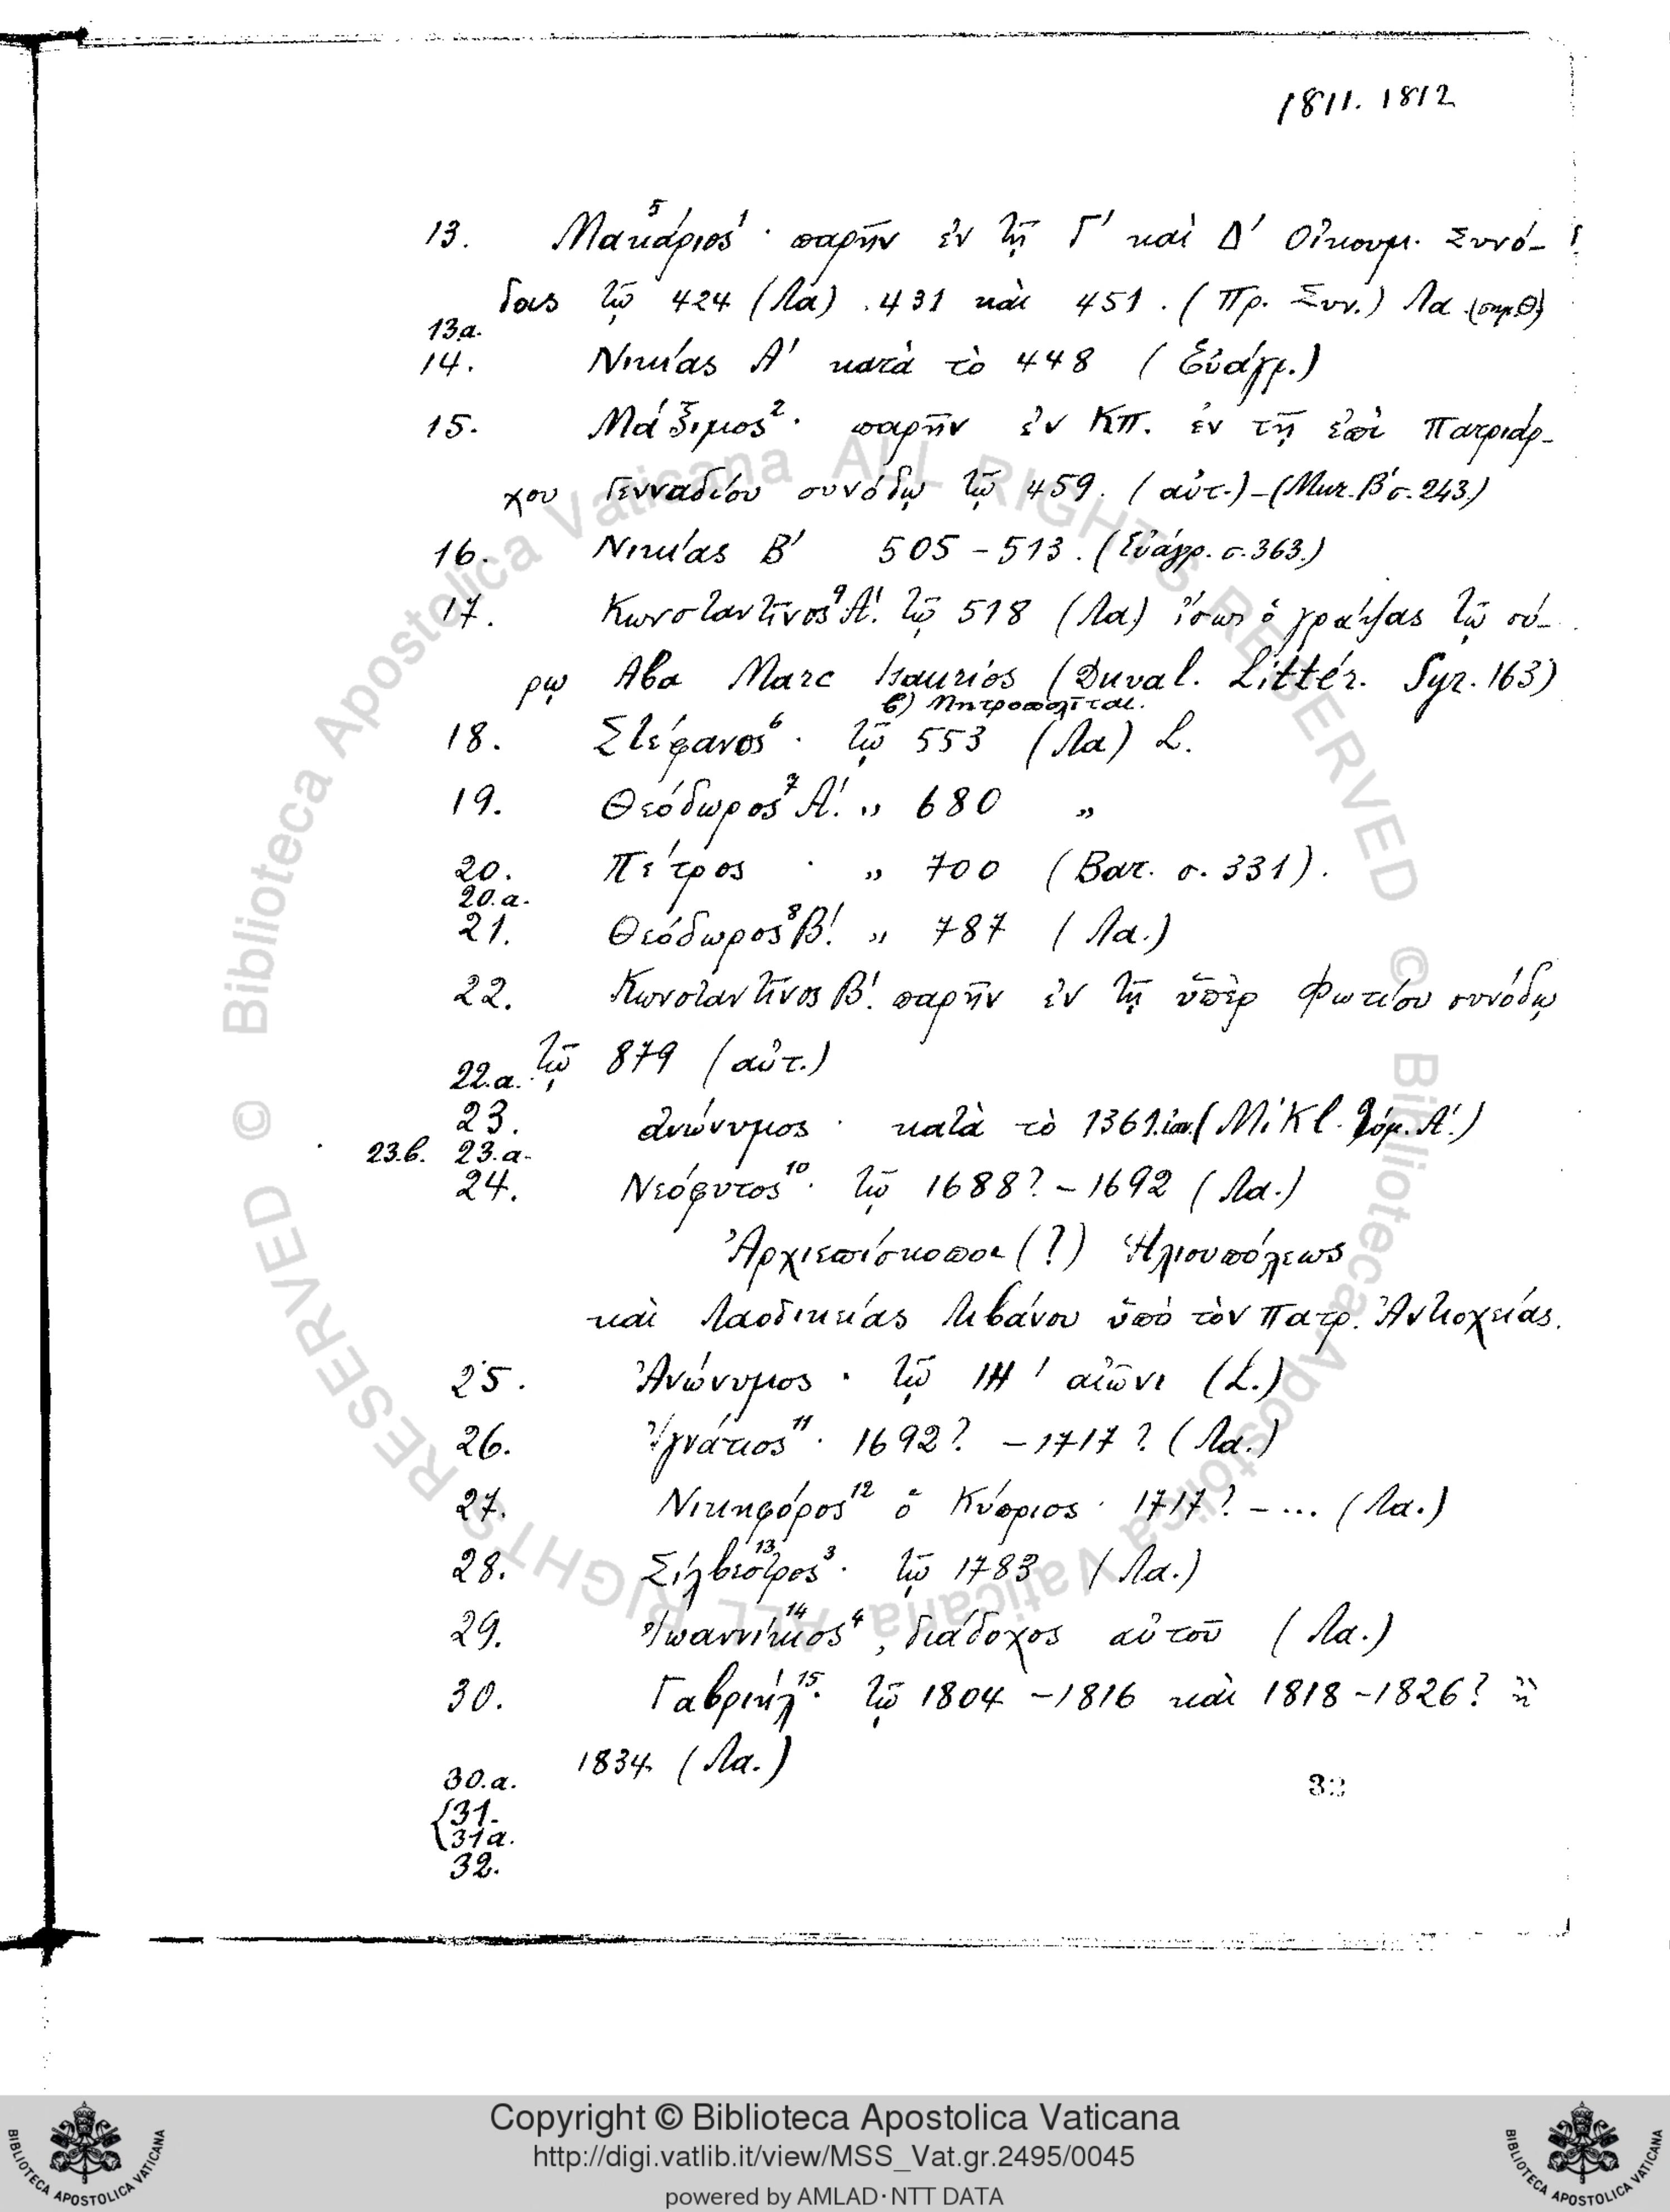 1811. 1812
13. Μακάριος⁵ ¹· παρῆν ἐν τῇ Γ' καὶ Δ' Οἰκουμ. Συνό-
δοις τῷ 424 (Λα) . 431 καὶ 451. (Πρ. Συν.) Λα
13.a.
14. Νικίας Α' κατὰ τὸ 448 (Εὐάγρ.)
15. Μάξιμος²· παρῆν ἐν Κπ. ἐν τῇ ἐπὶ Πατριάρ-
χου Γενναδίου συνόδῳ τῷ 459. (αὐτ.) - (Μιχ. Β' σ. 243.)
16. Νικίας Β' 505 - 513. (Εὐάγρ. σ. 363.)
17. Κωνσταντῖνος⁹ Α'. τῷ 518 (Λα) ἴσως ὁ γράψας τῷ σύ-
ρῳ Aba Marc Isauriós (Duval. Littér. Syr. 163)
6) Μητροπολῖται.
18. Στέφανος⁶· τῷ 553 (Λα) L.
19. Θεόδωρος⁷ Α'. „ 680 „
20. Πέτρος · „ 700 (Βατ. σ. 331).
20.a.
21. Θεόδωρος⁸ Β'. „ 787 (Λα.)
22. Κωνσταντῖνος Β'. παρῆν ἐν τῇ ὑπὲρ Φωτίου συνόδῳ
τῷ 879 (αὐτ.)
22.a.
23. ἀνώνυμος · κατὰ τὸ 1361.ἰαν. (Mikl. τόμ. Α'.)
23.b. 23.a.
24. Νεόφυτος¹⁰· τῷ 1688? - 1692 (Λα.)
Ἀρχιεπίσκοποι (?) Ἡλιουπόλεως
καὶ Λαοδικείας Λιβάνου ὑπὸ τὸν Πατρ. Ἀντιοχείας.
25. Ἀνώνυμος · τῷ ΙΗ' αἰῶνι (L.)
26. Ἰγνάτιος¹¹· 1692? - 1717? (Λα.)
27. Νικηφόρος¹² ὁ Κύπριος · 1717? - ... (Λα.)
28. Σίλβεστρος¹³ ³· τῷ 1783 (Λα.)
29. Ἰωαννίκιος¹⁴ ⁴, διάδοχος αὐτοῦ (Λα.)
30. Γαβριήλ¹⁵· τῷ 1804 - 1816 καὶ 1818 - 1826? ἢ
1834. (Λα.)
30.a.
31.
31a.
32.
© Biblioteca Apostolica Vaticana ALL RIGHTS RESERVED © Biblioteca Apostolica Vaticana ALL RIGHTS RESERVED
Copyright © Biblioteca Apostolica Vaticana
http://digi.vatlib.it/view/MSS_Vat.gr.2495/0045
powered by AMLAD·NTT DATA
BIBLIOTECA APOSTOLICA VATICANA
BIBLIOTECA APOSTOLICA VATICANA